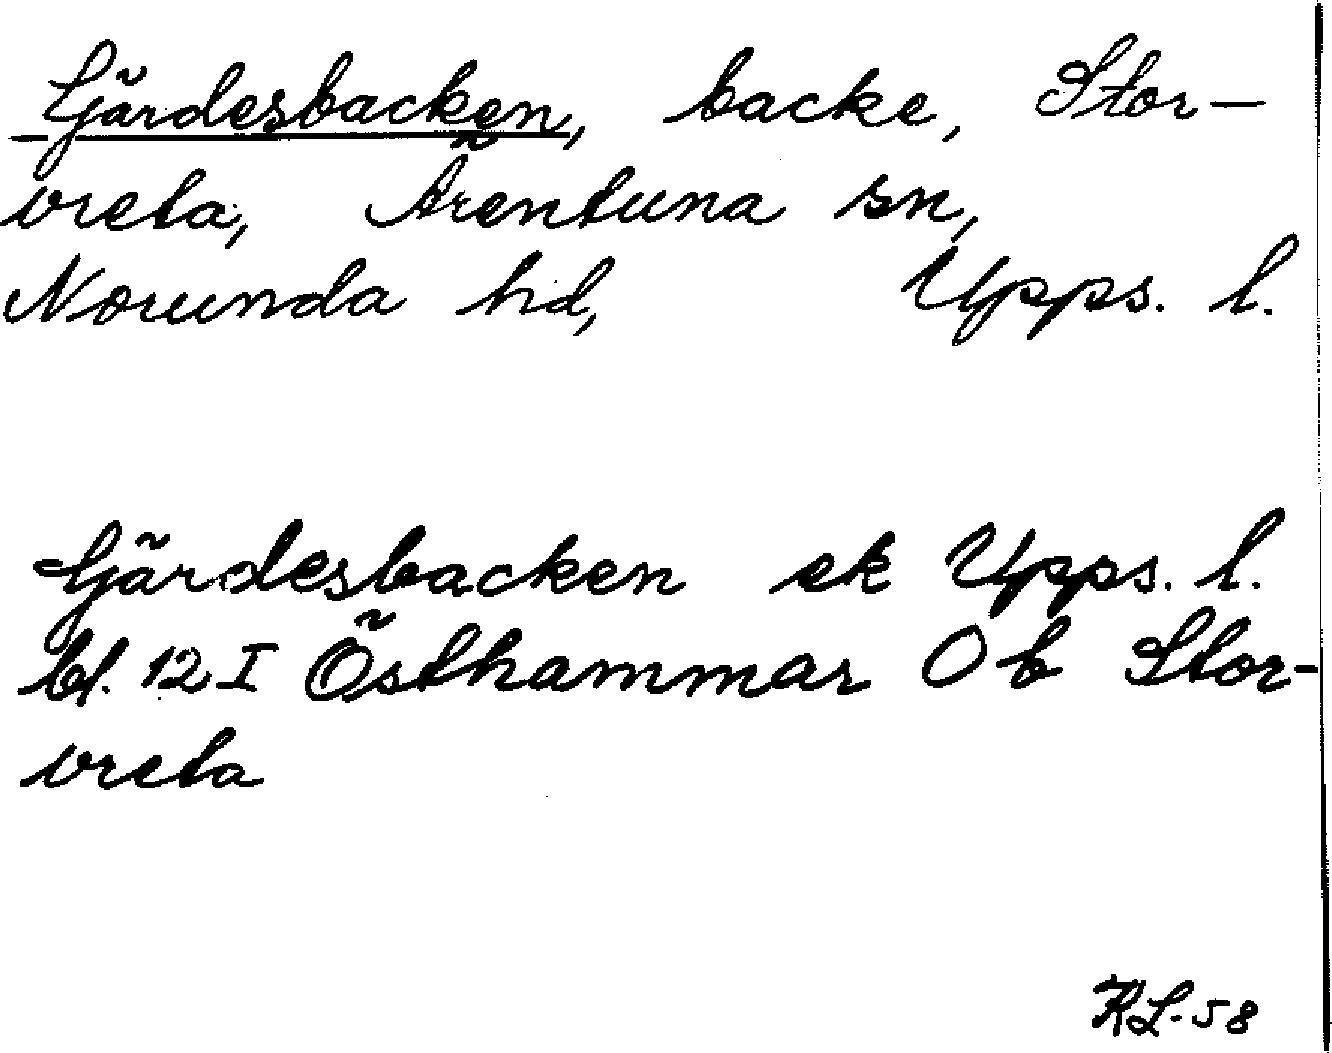 Gärdesbacken, backe, Stor-
vreta, Ärentuna sn,
Norunda hd, Upps. l.
Gärdesbacken ek Upps. l.
bl. 12 I Östhammar O b Stor-
vreta
KL-58